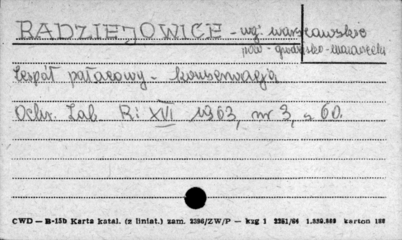 RADZIEJOWICE - wg. warszawskie
pow - grodzisko-mazowiecki
Zespół pałacowy - konserwacja
Ochr. Zab. R: XVI 1963, nr 3, s 60.
CWD — B-15b Karta katal. (z liniat.) zam. 2390/ZW/P — kzg 1 2251/64 karton